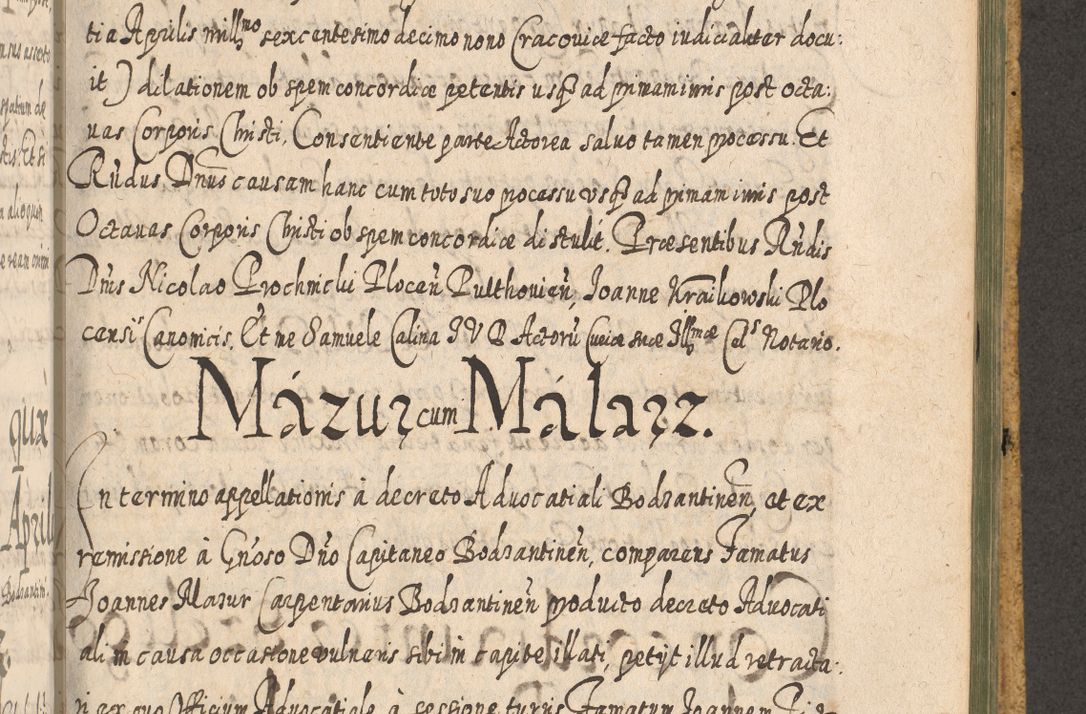 tia Aprilis mill͂mo sexcentesimo decimo nono Cracoviæ facto iudicialiter docu:
it) dilationem ob spem concordiæ petentis usq3 ad primam iuris post octa:
uas Corporis Christi, Consentiente parte Actorea salvo tamen processu. Et
Rndus Dnus causam hanc cum toto suo processu usq3 ad primam iuris post
Octavas Corporis Christi ob spem concordiæ distulit. Præsentibus Rndis
Dnis Nicolao Prochnicki Plocen Pulthovien, Joanne Kraikowski Plo
censis Canonicis. Et me Samuele Calina J V D Actoru Curiæ suæ Illmæ Cels Notario.
Mázur cum Málarz.
In termino appellationis à decreto Advocatiali Bodzantinen, et ex
remissione à Gnoso Dno Capitaneo Bodzantinen, comparens Famatus
Joannes Mazur Carpentarius Bodzantinen producto decreto Advocati
ali in causa occasione vulneris sibi in capite illati, petijt illud retracta:
ri ex quo Officium Advocatiale à sessione turris Famatum Joannem